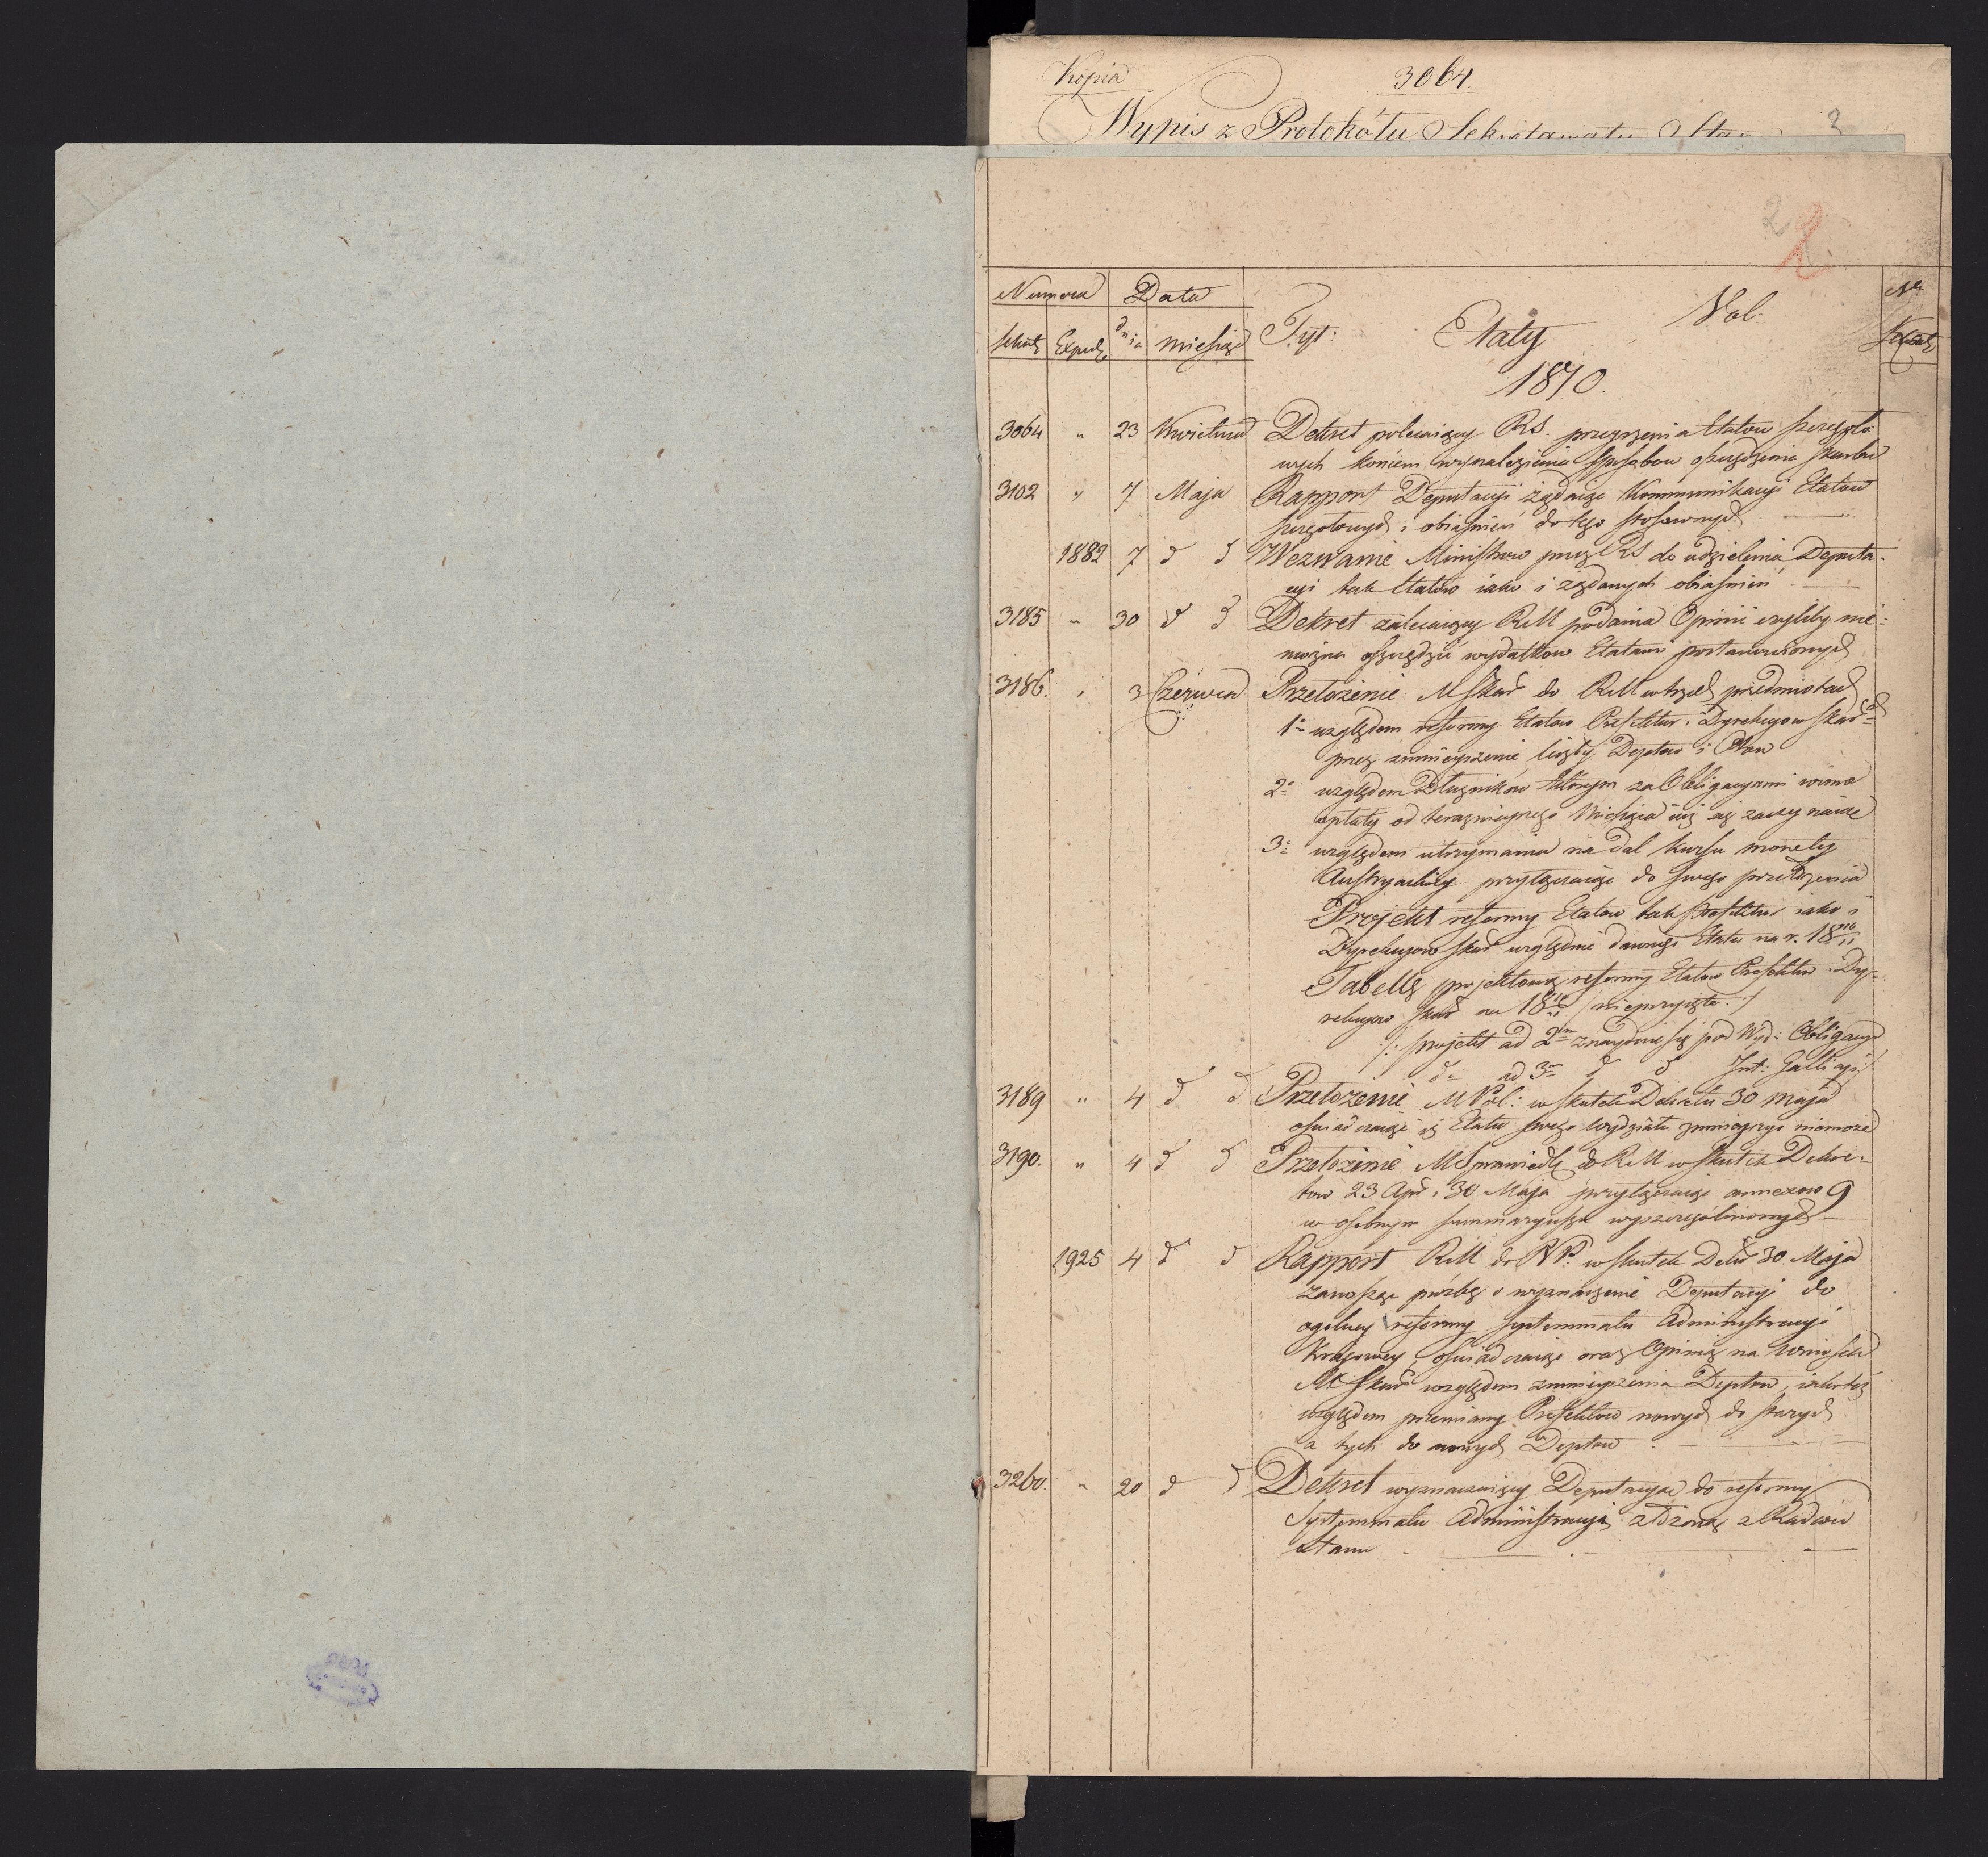 Kopia 3064.
Wypis z Protokółu Sekretariatu Stanu 3
2 2.
Numera Data Nr
Vol:
Sekret Exped dnia miesiąc Tyt: Etaty
1810.
3064 " 23 Kwietnia Dekret polecaiący RS. przeyrzenia Etatow szczegóło=
wych koncem wynalezienia sposobow oszczędzenia Skarbu
3102 " 7 Maja Rapport Deputacyi żądaiąc Kommunikacyi Etatow
szczegołowych i obiaśnień do tego stosownych
1882 7 d d Wezwanie Ministrow przez RS. do udzielenia Deputa=
cyi tak Etatów iako i żądanych obiaśnień
3185 " 30 d d Dekret zalecaiący RM podania Opinii czyliby nie=
można oszczędzić wydatkow Etatami postanowionych
3186. " 3 Czerwca Przełożenie MSkar do RM w trzech przedmiotach
1o względem reformy Etatow Prefektur i Dyrekcyow Skar=
przez zmnieyszenie liczby Deptow i
2o względem Dłużników którym za Obligacyami
opłaty od teraznieyszego Miesiąca iuż się zaczynaiące
3o względem utrzymania na dal kursu monety
Austryackiey przyłączaiąc do swego przełożenia
Projekt reformy Etatow tak Prefektur iako i
Dyrekcyow Skar względnie dawnego Etatu na r. 18 10/11
Tabellę projektową reformy Etatow Prefektur i Dy=
rekcyow Skar na 18 10/11 /nieprzyięte./
/: projekt ad 2m znayduie się pod Wyd: Obligacye
do ad 3m d d Int: Gallicyi/
3189 " 4 d d Przełożenie MPol: w skutek Dekretu 30 Maja
oświadczaiąc iż Etatu swego Wydziału zmnieyszyc niemoże
3190. " 4 d d Przełożenie MSprawiedl do RM w skutek Dekre=
tow 23 Apr i 30 Maja przyłączaiąc annexow 9
w osobnym summaryuszu wyszczególnionych
1925 4 d d Rapport RM do NP: w skutek Dekr 30 Maja
zanosząc prozbę o wyznaczenie Deputacyi do
ogolney reformy systemmatu Administracyi
Krajowey, oświadczaiąc oraz Opinię na wniosek
MSkar względem zmnieyszenia Deptow, iakoteż
względem przemiany Prefektow nowych do starych
a tych do nowych Deptow
3260. " 20 d d Dekret wyznaczaiący Deputacyę do reformy
Systemmatu Administracyi złożoną z Radcow
Stanu